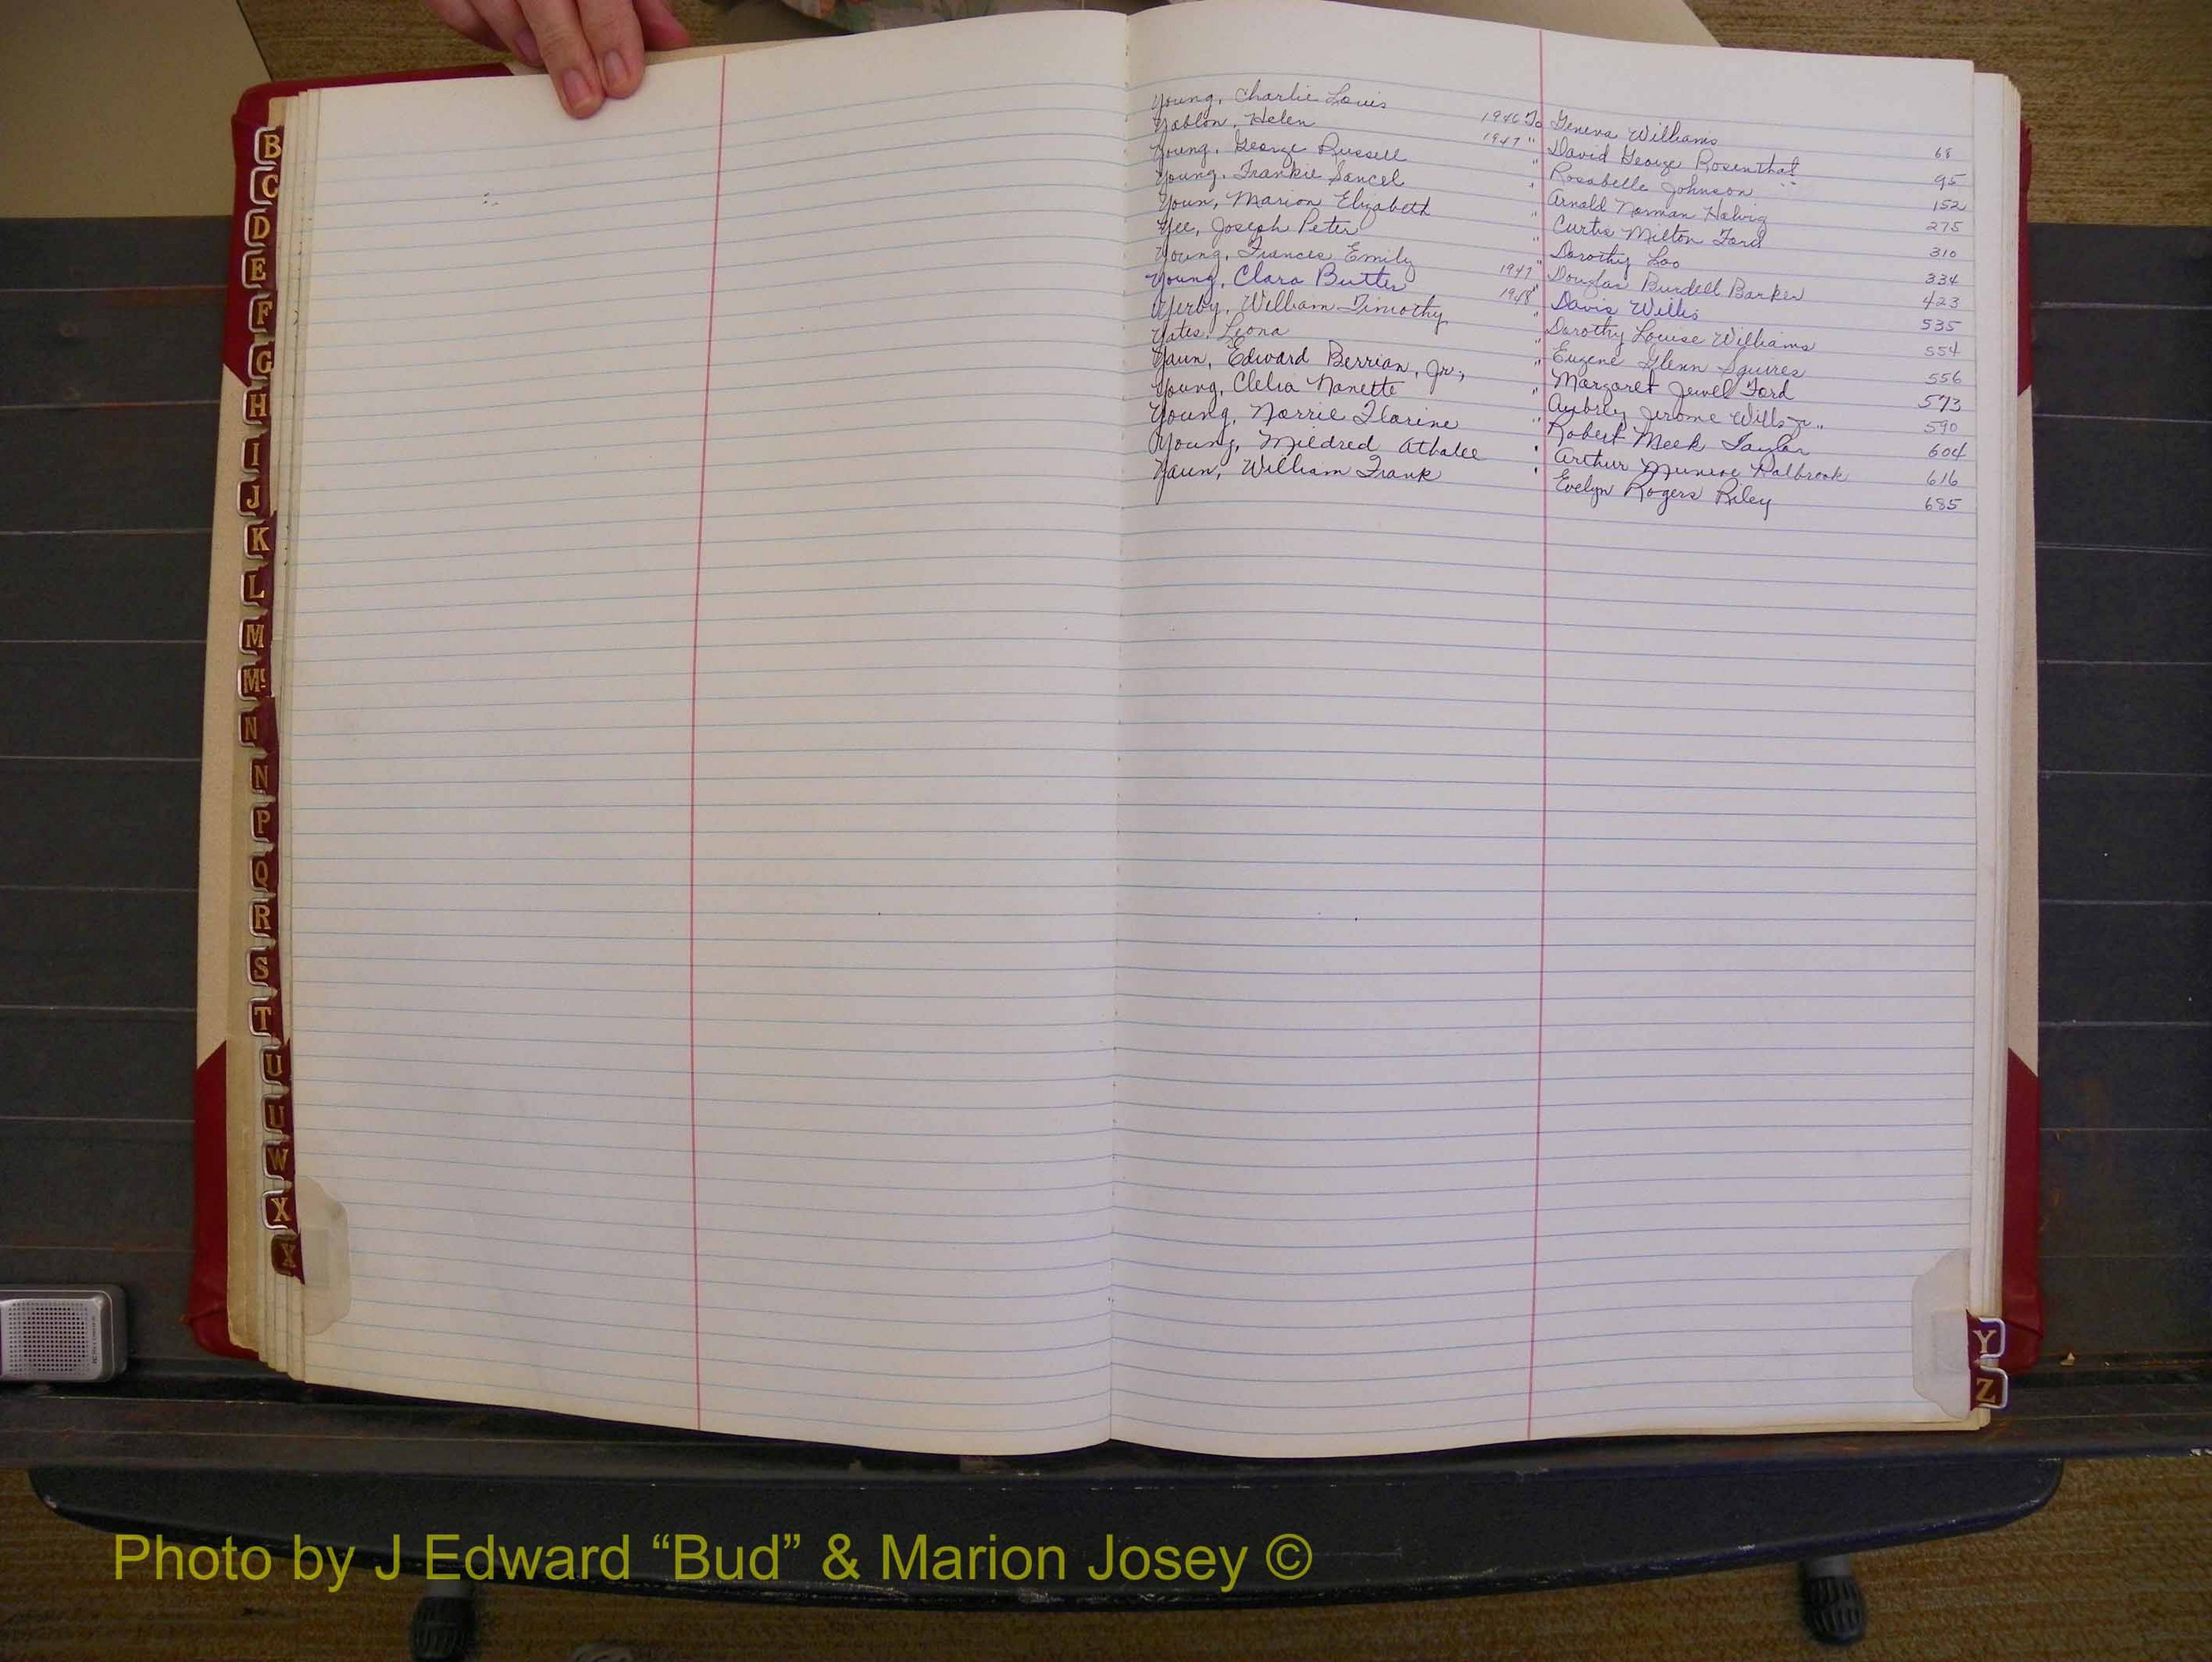 Young, Charlie Louis 1946 To Geneva Williams 68
Yablon, Helen 1947 " David George Rosenthal 95
Young, George Russell " Rosabelle Johnson 152
Young, Frankie Sancel " Arnold Norman Halvig 275
Youn, Marion Elizabeth " Curtis Milton Ford 310
Yee, Joseph Peter " Dorothy Loo 334
Young, Frances Emily 1947 " Douglas Burdell Barker 423
Young, Clara Butler 1948 " Davis Willis 535
Yerby, William Timothy " Dorothy Louise Williams 554
Yates, Leona " Eugene Glenn Squires 556
Yaun, Edward Berrian, Jr., " Margaret Jewel Ford 573
Young, Clelia Nanette " Aubrey Jerome Wills Jr. 590
Young, Norrie Florine " Robert Meek Taylor 604
Young, Mildred Athalee " Arthur Munroe Halbrook 616
Yaun, William Frank " Evelyn Rogers Riley 685
B
C
D
E
F
G
H
I
J
K
L
M
Mc
N
N
P
Q
R
S
T
U
U
W
X
X
Y
Z
Photo by J Edward “Bud” & Marion Josey ©